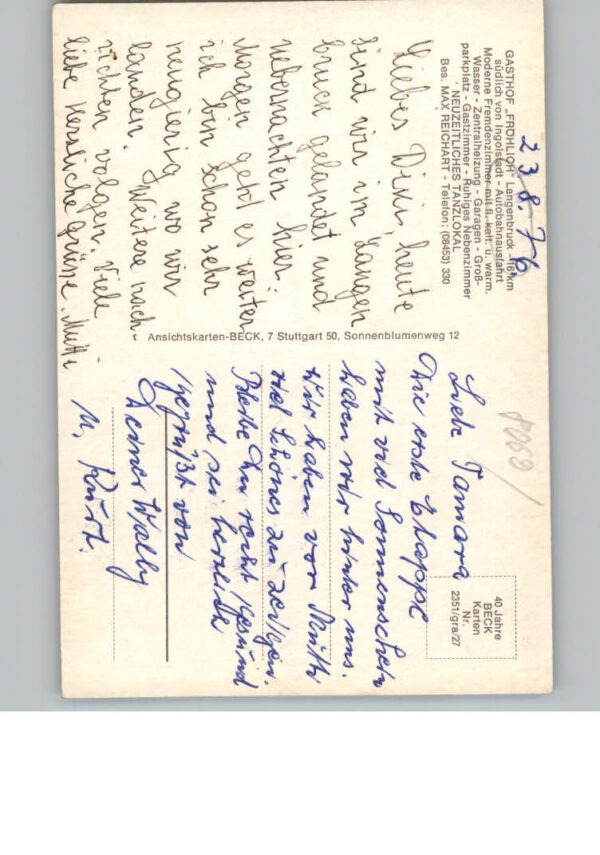 GASTHOF „FRÖHLICH" Langenbruck - 16 km
südlich von Ingolstadt - Autobahnausfahrt
Moderne Fremdenzimmer mit fl. kalt. u. warm.
Wasser - Zentralheizung - Garagen - Groß-
parkplatz - Gastzimmer - Ruhiges Nebenzimmer
NEUZEITLICHES TANZLOKAL
Bes. MAX REICHART - Telefon: (08453) 330
23.8.76
Liebes Dixi, heute
sind wir im Langen
bruck gelandet und
uebernachten hier.
Morgen geht es weiter
ich bin schon sehr
neugierig wo wir
landen. Weitere nach-
richten volgen. Viele
liebe herzliche grüße. Mutti
Ansichtskarten-BECK, 7 Stuttgart 50, Sonnenblumenweg 12
40 Jahre
BECK
Karten
Nr.
2351/gra/27
Liebe Tamara
Die erste Etappe
mit viel Sonnenschein
haben wir hinter uns.
Wir haben vor Mutti
viel Schönes zu zeigen.
Bleibe Du recht gesund
und sei herzlich
gegrüßt von
Deiner Wally
u. Kurt.